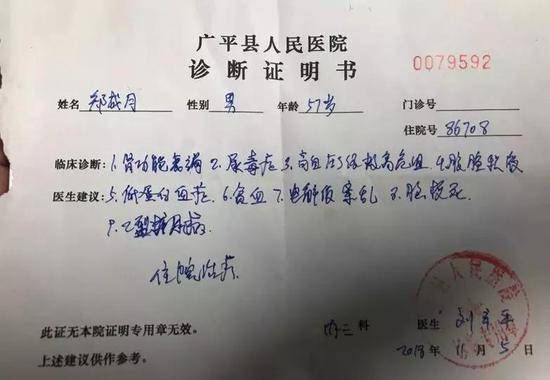 广平县人民医院
诊断证明书
0079592
姓名 郑成月 性别 男 年龄 57岁 门诊号
住院号 86708
临床诊断:1.肾功能衰竭 2.尿毒症 3.高血压3级极高危组 4.腹腔积液
医生建议:5.低蛋白血症 6.贫血 7.电解质紊乱 8.脑梗死
9.2型糖尿病
住院治疗
人民医院
此证无本院证明专用章无效。 内二 科 医生
上述建议供作参考。 2018年11月5日